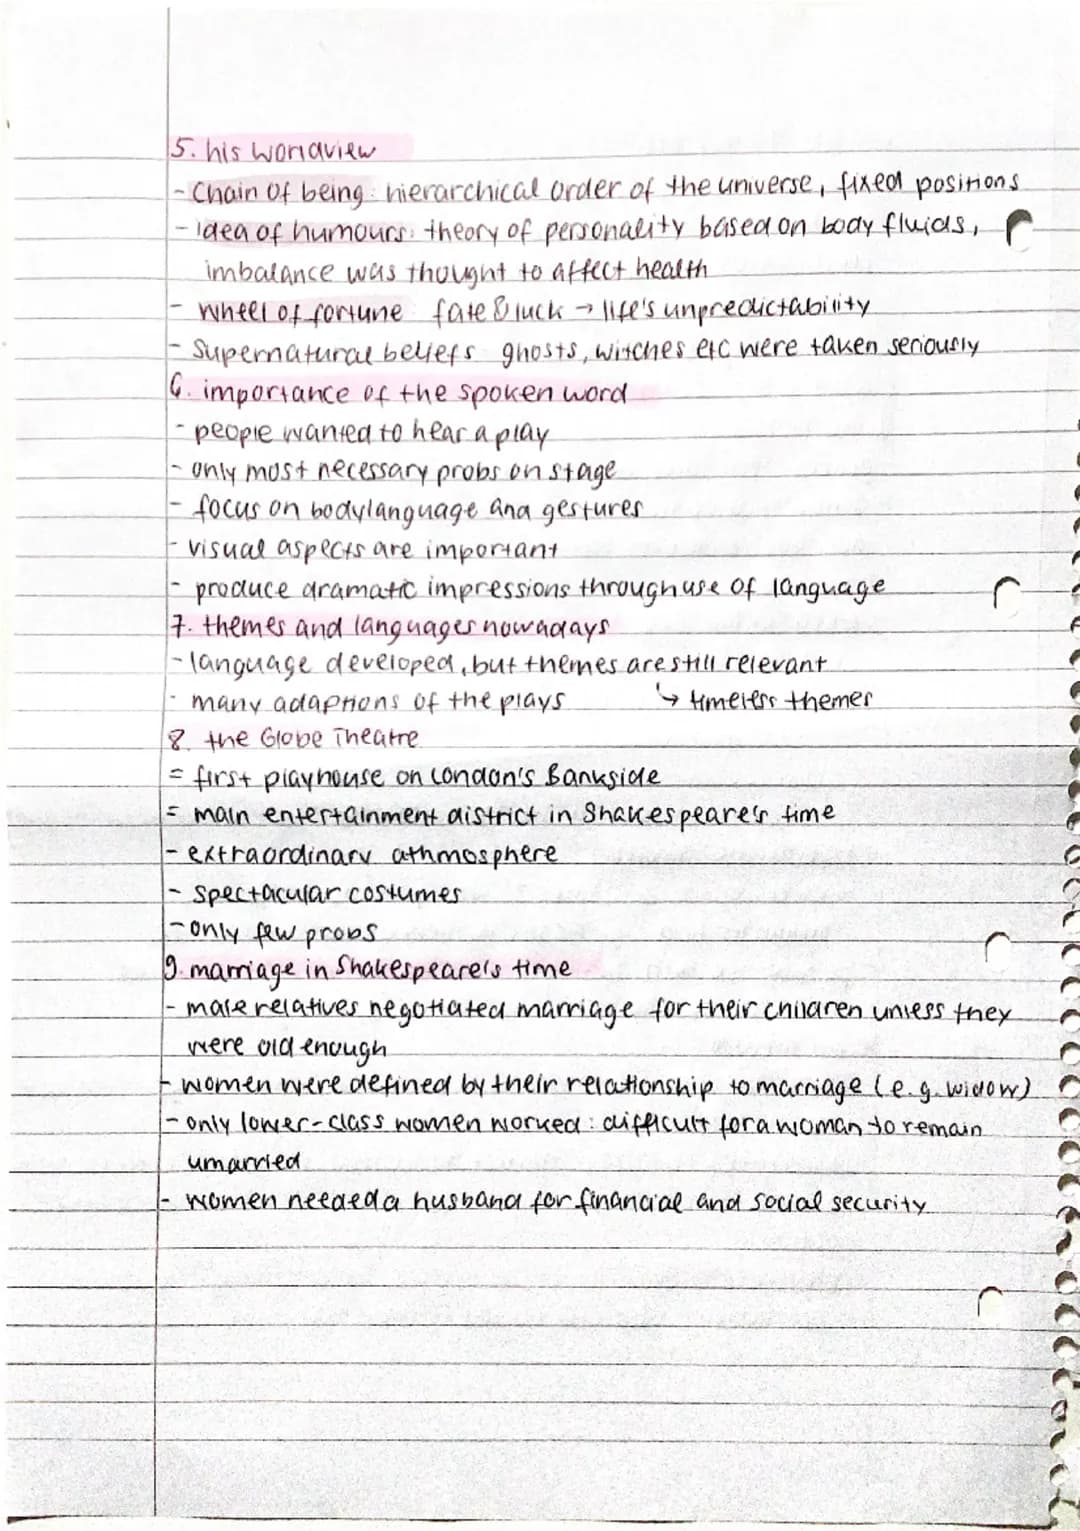 5. his worldview
- Chain of being: hierarchical order of the universe, fixed positions
- idea of humours: theory of personality based on body fluids,
imbalance was thought to affect health
- wheel of fortune fate & luck → life's unpredictability
- Supernatural beliefs ghosts, witches etc were taken seriously
6. importance of the spoken word
- people wanted to hear a play
- only most necessary probs on stage
- focus on bodylanguage and gestures
- visual aspects are important
- produce dramatic impressions through use of language
7. themes and languages nowadays
- language developed, but themes are still relevant
- many adaptions of the plays ↳ timeless themes
8. the Globe Theatre
= first playhouse on London's Bankside
= main entertainment district in Shakespeare's time
- extraordinary athmosphere
- spectacular costumes
- only few probs
9. marriage in Shakespeare's time
- male relatives negotiated marriage for their children unless they
were old enough
- women were defined by their relationship to marriage (e.g. widow)
- only lower-class women worked: difficult for a woman to remain
umarried
- women needed a husband for financial and social security